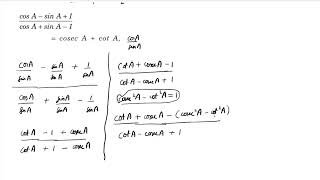 cos A – sin A + 1
cos A + sin A – 1
= cosec A + cot A, cosA
sinA
cosA/sinA - sinA/sinA + 1/sinA
cosA/sinA + sinA/sinA - 1/sinA
cotA - 1 + cosecA
cotA + 1 - cosecA
cotA + cosecA - 1
cotA - cosecA + 1
cosec²A - cot²A = 1
cotA + cosecA - (cosec²A - cot²A)
cotA - cosecA + 1